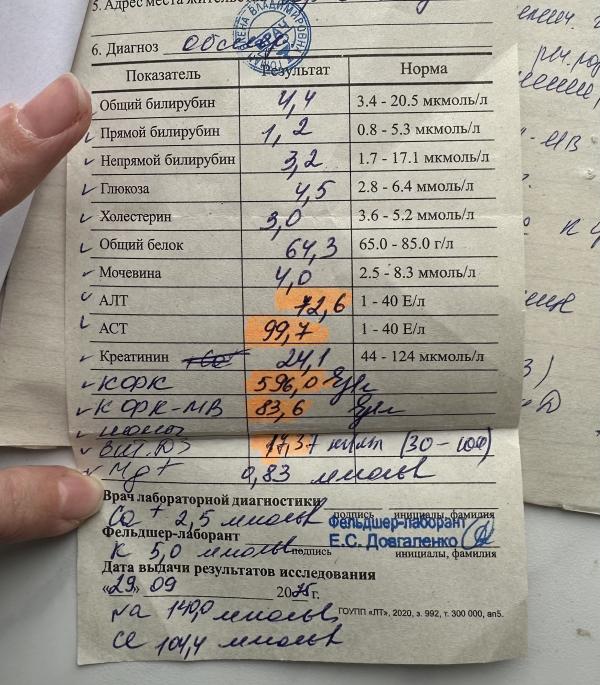 5. Адрес места
6. Диагноз обслед.
Показатель Результат Норма
Общий билирубин 4,4 3.4 - 20.5 мкмоль/л
Прямой билирубин 1,2 0.8 - 5.3 мкмоль/л
Непрямой билирубин 3,2 1.7 - 17.1 мкмоль/л
Глюкоза 4,5 2.8 - 6.4 ммоль/л
Холестерин 3,0 3.6 - 5.2 ммоль/л
Общий белок 64,3 65.0 - 85.0 г/л
Мочевина 4,0 2.5 - 8.3 ммоль/л
АЛТ 72,6 1 - 40 Е/л
АСТ 99,7 1 - 40 Е/л
Креатинин 24,1 44 - 124 мкмоль/л
КФК 596,0 Ед/л
КФК-МВ 83,6 Ед/л
ионы
вит. D3 17,37 нг/мл (30-100)
Mg+ 0,83 ммоль/л
Врач лабораторной диагностики
подпись инициалы, фамилия
Ca+ 2,5 ммоль/л
Фельдшер-лаборант
Фельдшер-лаборант
Е.С. Довгаленко
K 5,0 ммоль/л
подпись инициалы, фамилия
Дата выдачи результатов исследования
«29» 09 2025 г.
Na 140,0 ммоль/л
ГОУПП «ЛТ», 2020, з. 992, т. 300 000, ап5.
Cl 104,4 ммоль/л